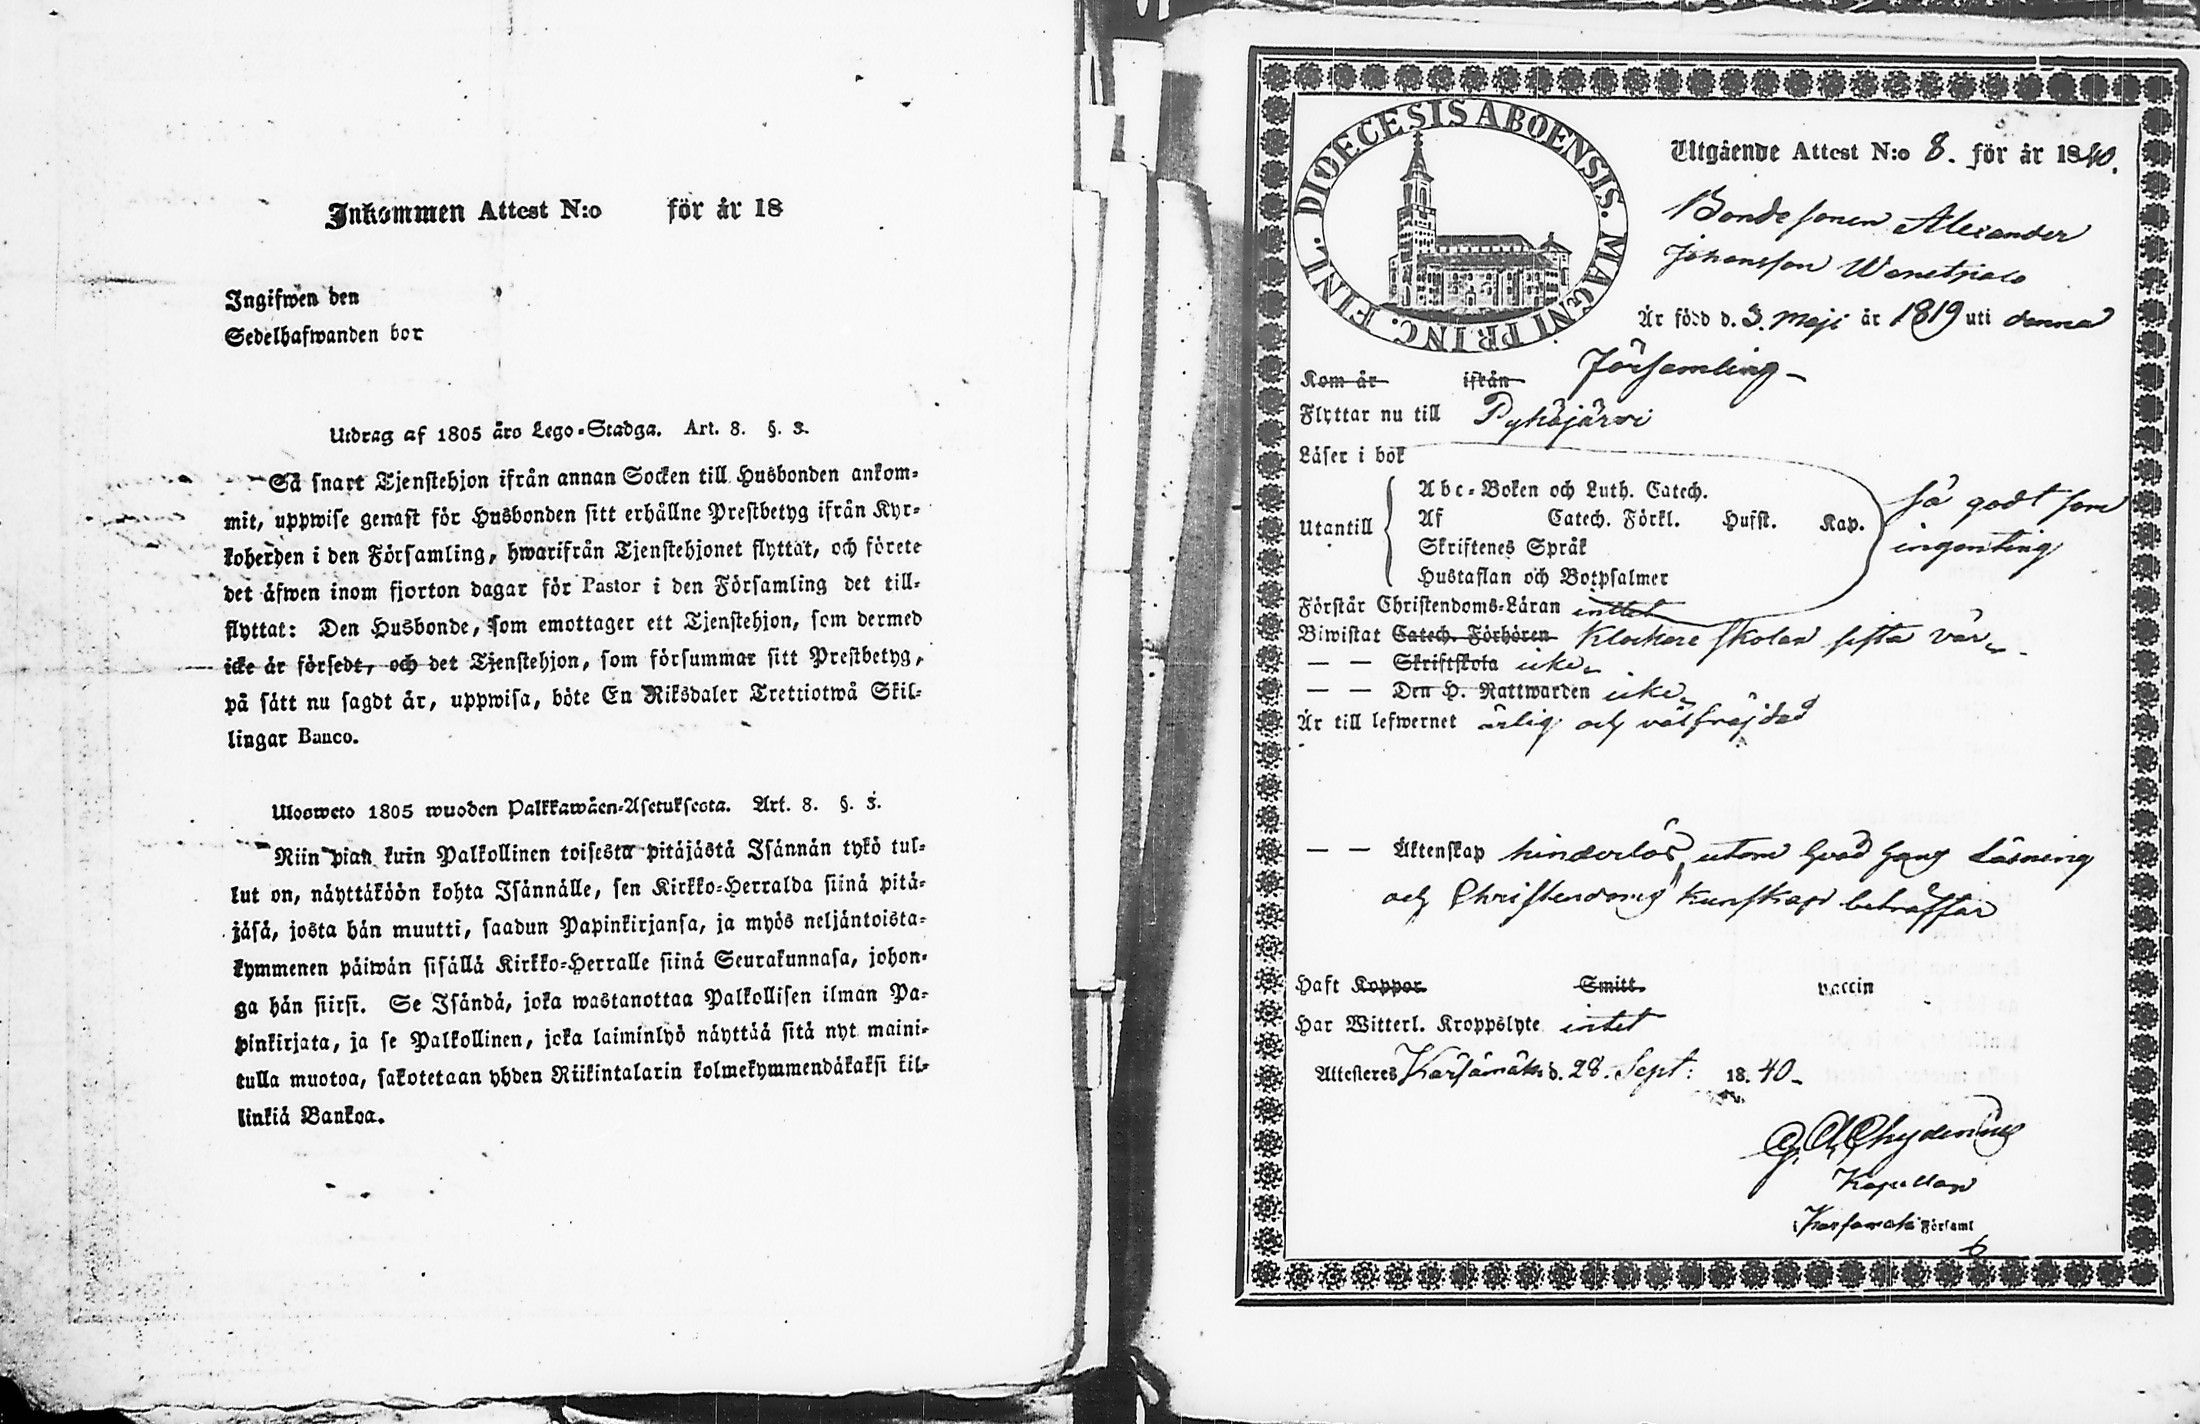 Inkommen Attest N:o för år 18
Ingifwen den
Sedelhafwanden bor
Utdrag af 1805 års Lego-Stadga. Art. 8. §. 3.
Så snart Tjenstehjon ifrån annan Socken till Husbonden ankom-
mit, uppwise genast för Husbonden sitt erhållne Prestbetyg ifrån Kyr-
koherden i den Församling, hwarifrån Tjenstehjonet flyttat, och förete
det äfwen inom fjorton dagar för Pastor i den Församling det till-
flyttat: Den Husbonde, som emottager ett Tjenstehjon, som dermed
icke är försedt, och det Tjenstehjon, som försummar sitt Prestbetyg,
på sätt nu sagdt är, uppwisa, böte En Riksdaler Trettiotwå Skil-
lingar Banco.
Ulosweto 1805 wuoden Palkkawäen-Asetuksesta. Art. 8. §. 3.
Niin pian kuin Palkollinen toisesta pitäjästä Isännän tykö tul-
lut on, näyttäköön kohta Isännälle, sen Kirkko-Herralda siinä pitä-
jäsä, josta hän muutti, saadun Papinkirjansa, ja myös neljäntoista-
kymmenen päiwän sisällä Kirkko-Herralle siinä Seurakunnasa, johon-
ga hän siirsi. Se Isändä, joka wastanottaa Palkollisen ilman Pa-
pinkirjata, ja se Palkollinen, joka laiminlyö näyttää sitä nyt maini-
tulla muotoa, sakotetaan yhden Riikintalarin kolmekymmendäkaksi kil-
linkiä Bankoa.
DIOECESIS ABOENSIS. MAGNI PRINC. FINL.
Utgående Attest N:o 8. för år 1840.
Bondesonen Alexander
Johansson
Är född d. 3. Maji år 1819 uti denna
Församling-
Kom år ifrån
Flyttar nu till Pyhäjärvi
Läser i bok
Abc-Boken och Luth. Catech.
Utantill Af Catech. Förkl. Hufst. Kap.
så godt som
ingenting
Skriftenes Språk
Hustaflan och Botpsalmer
Förstår Christendoms-Läran intet
Biwistat Catech. Förhören Klockare skolan sista vår
— — Skriftskola icke
— — Den H. Nattwarden icke
Är till lefwernet ärlig och välfräjdad
— — Äktenskap hinderlös, utom hvad hans Läsning
och Christendoms kunskap beträffar
Haft Koppor Smitt. vaccin
Har Witterl. Kroppslyte intet
Attesteras Kärsämäki d. 28. Sept: 18.40-
G. A. Chydenius
Kapellan
i Kärsämäki Församl